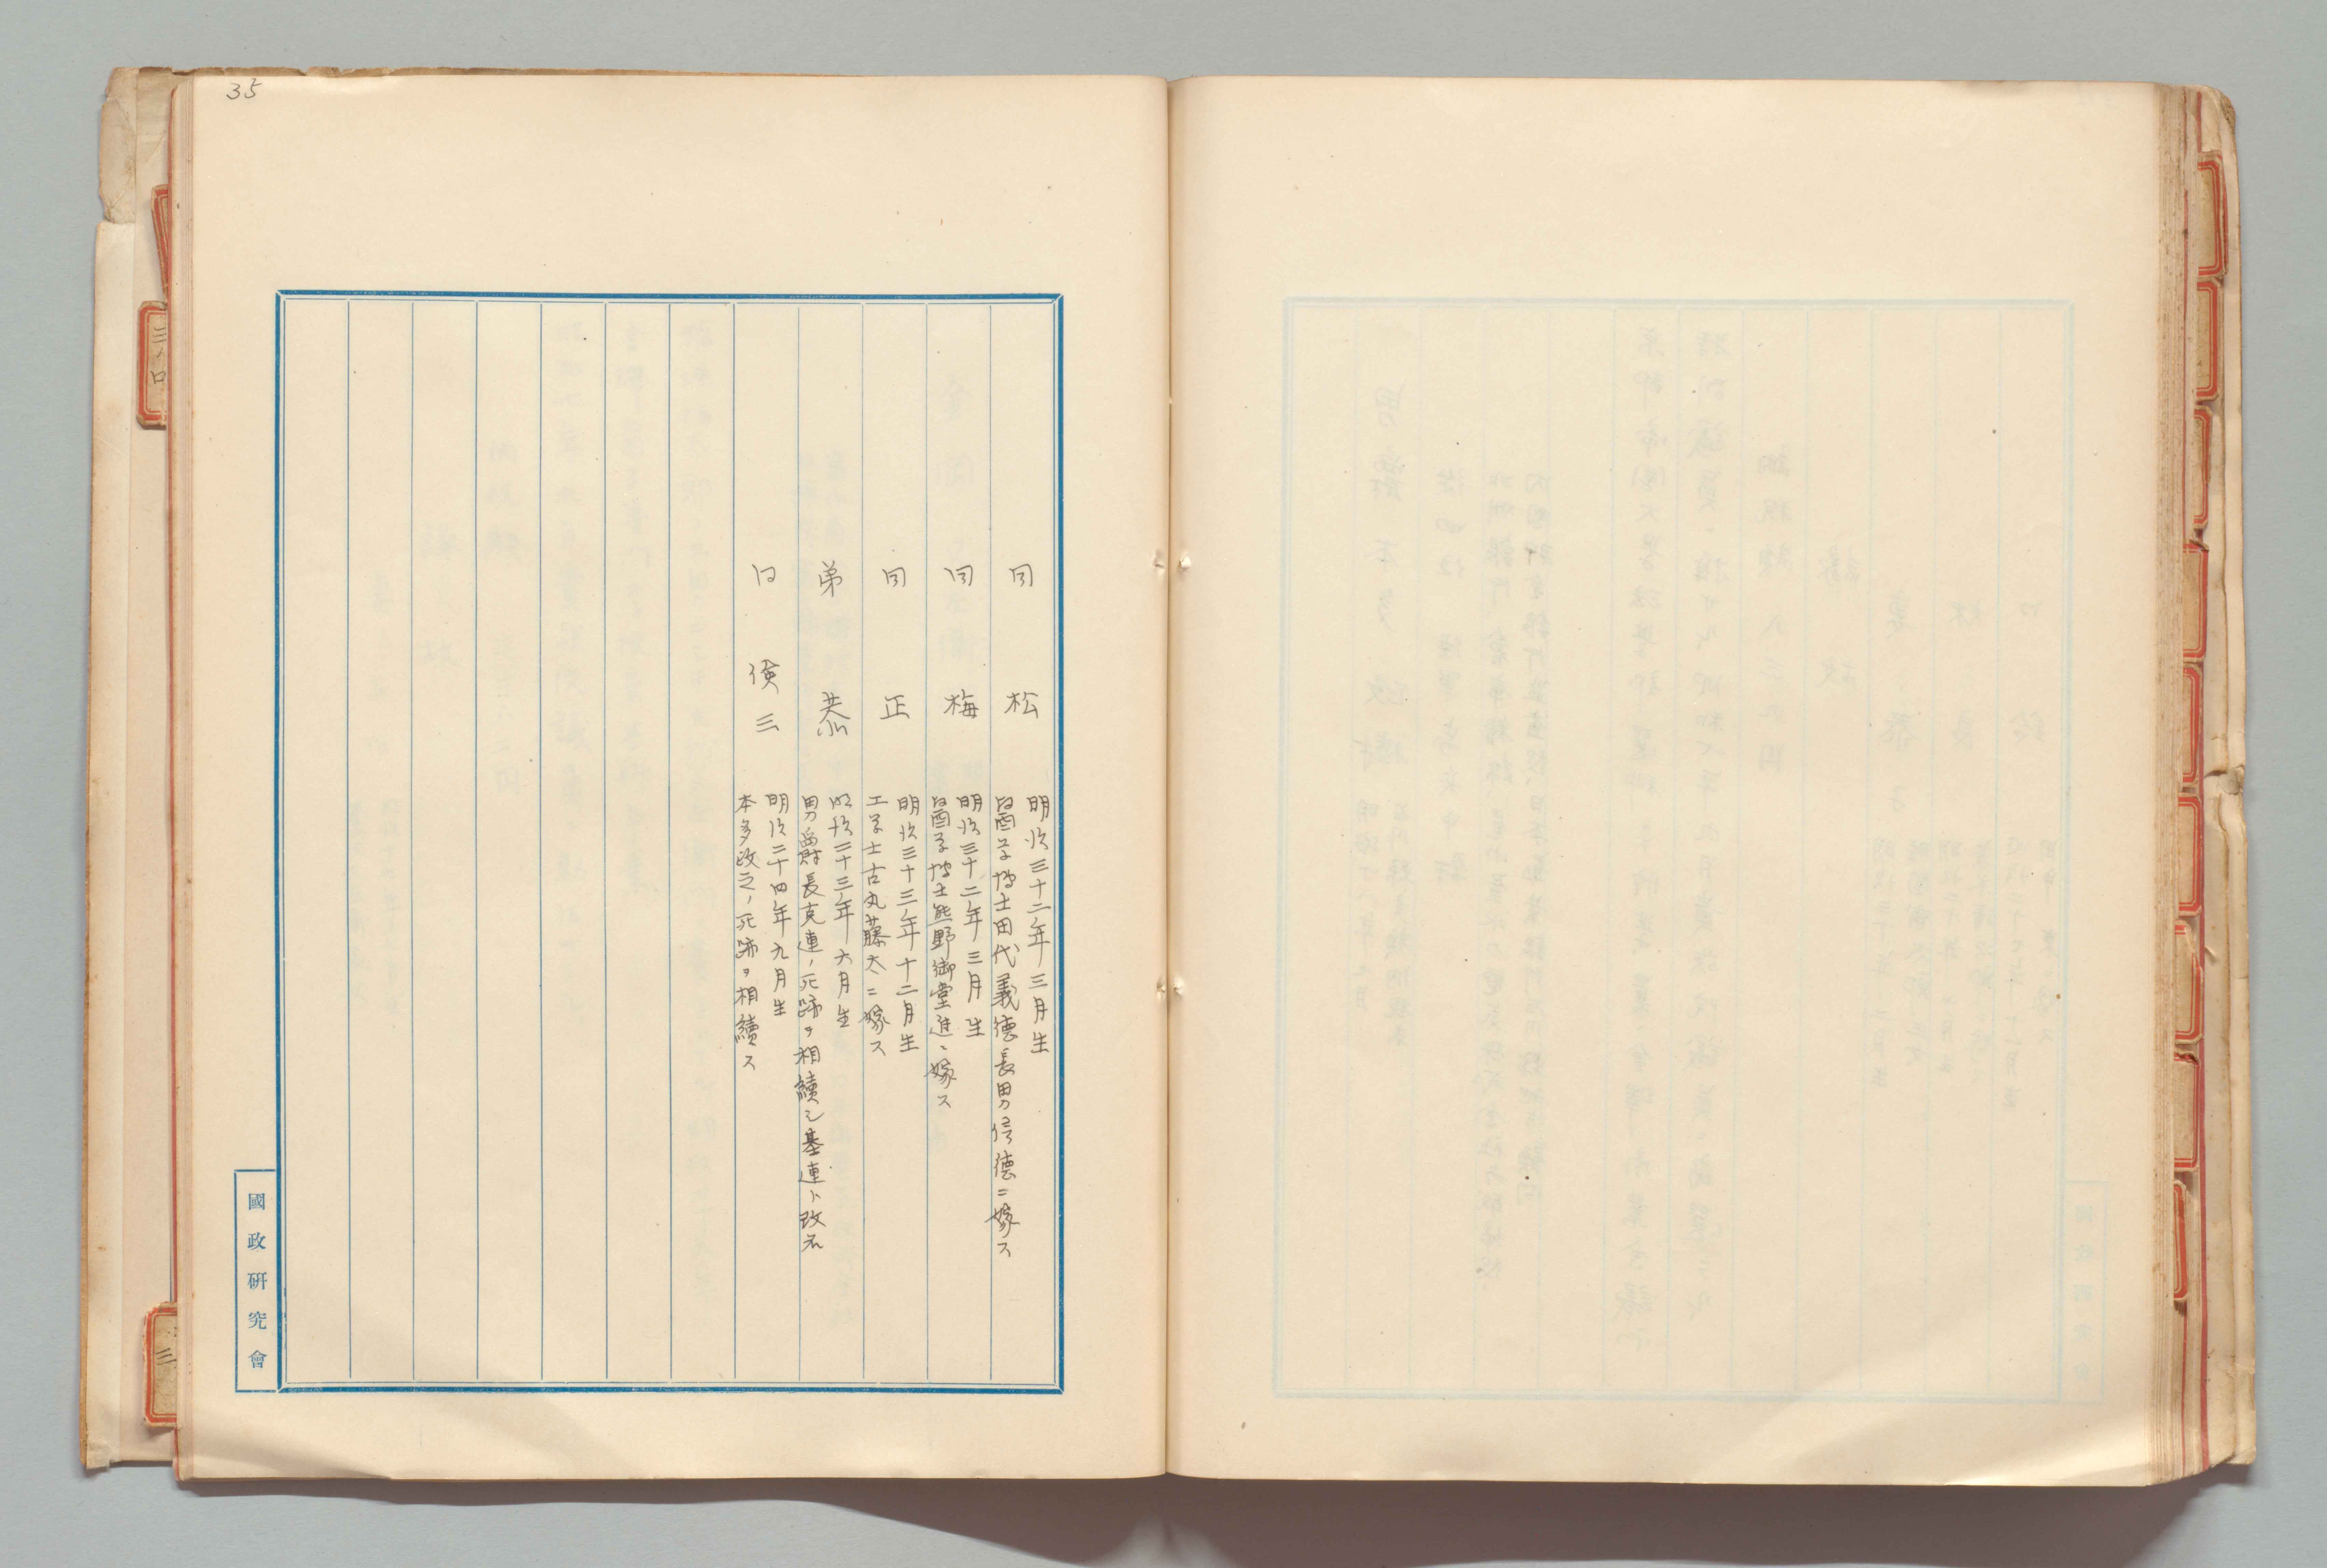 35
同 松
明治三十二年三月生
医学博士田代義徳長男信徳ニ嫁ス
同 梅
明治三十二年三月生
医学博士熊野御堂進ニ嫁ス
同 正
明治三十三年十二月生
工学士古丸藤太ニ嫁ス
弟 恭
明治二十三年六月生
男爵長克連ノ死跡ヲ相續シ基連ト改名
同 俟三
明治二十四年九月生
本多政之ノ死跡ヲ相續ス
國政研究會
三ノ口
三